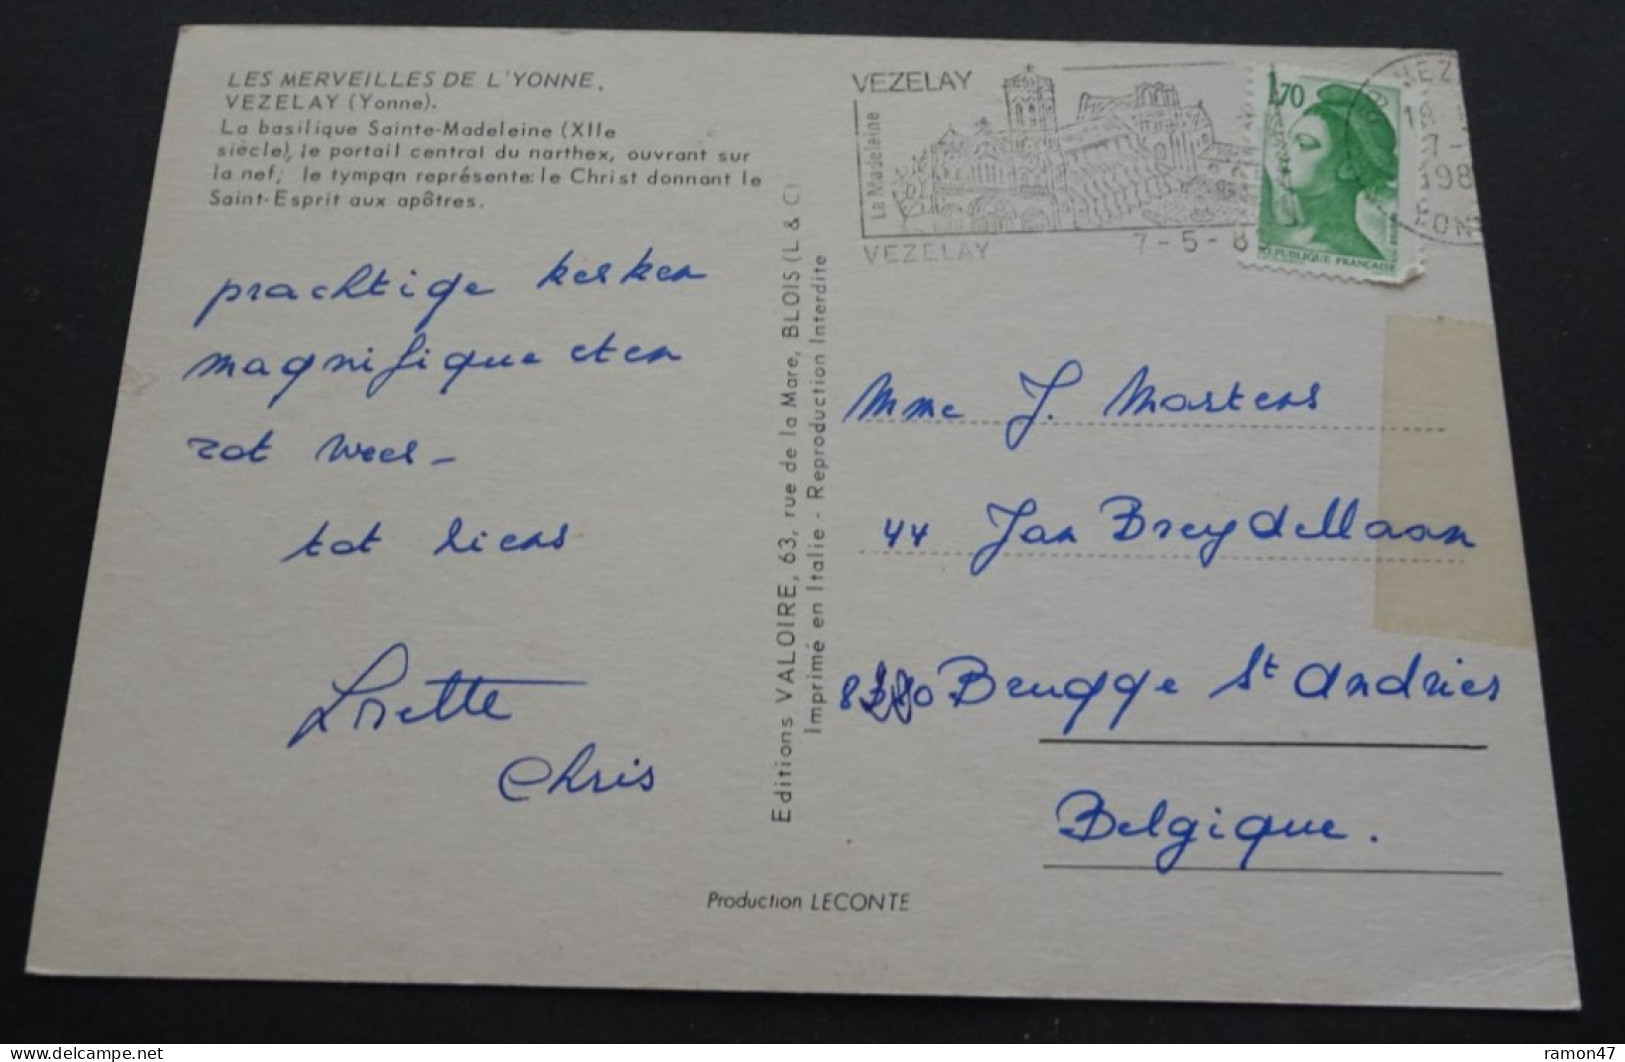 LES MERVEILLES DE L'YONNE.
VEZELAY (Yonne).
La basilique Sainte-Madeleine (XIIe
siècle), le portail central du narthex, ouvrant sur
la nef; le tympan représente: le Christ donnant le
Saint-Esprit aux apôtres.
prachtige kerken
magnifique eten
zot weer -
tot tiens
Lisette
Chris
Editions VALOIRE, 63, rue de la Mare, BLOIS (L & C)
Imprimé en Italie - Reproduction Interdite
Production LECONTE
VEZELAY
La Madeleine
VEZELAY
7-5-8
1,70
REPUBLIQUE FRANÇAISE
VEZ
18
7-
198
YON
Mme J. Martens
44 Jan Breydellaan
8280 Brugge St Andries
Belgique.
ramon47